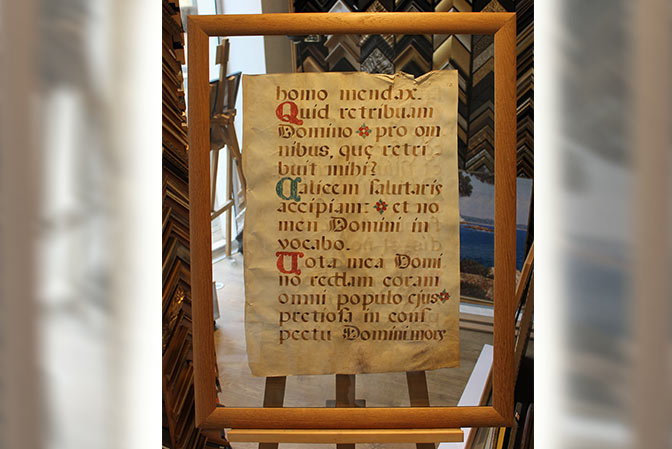 homo mendax.
Quid retribuam
Domino pro om
nibus, quę retri
buit mihi?
Calicem ſalutaris
accipiam: et no
men Domini in
vocabo.
Vota mea Domi
no reddam coram
omni populo ejus
pretioſa in conſ
pectu Domini mors